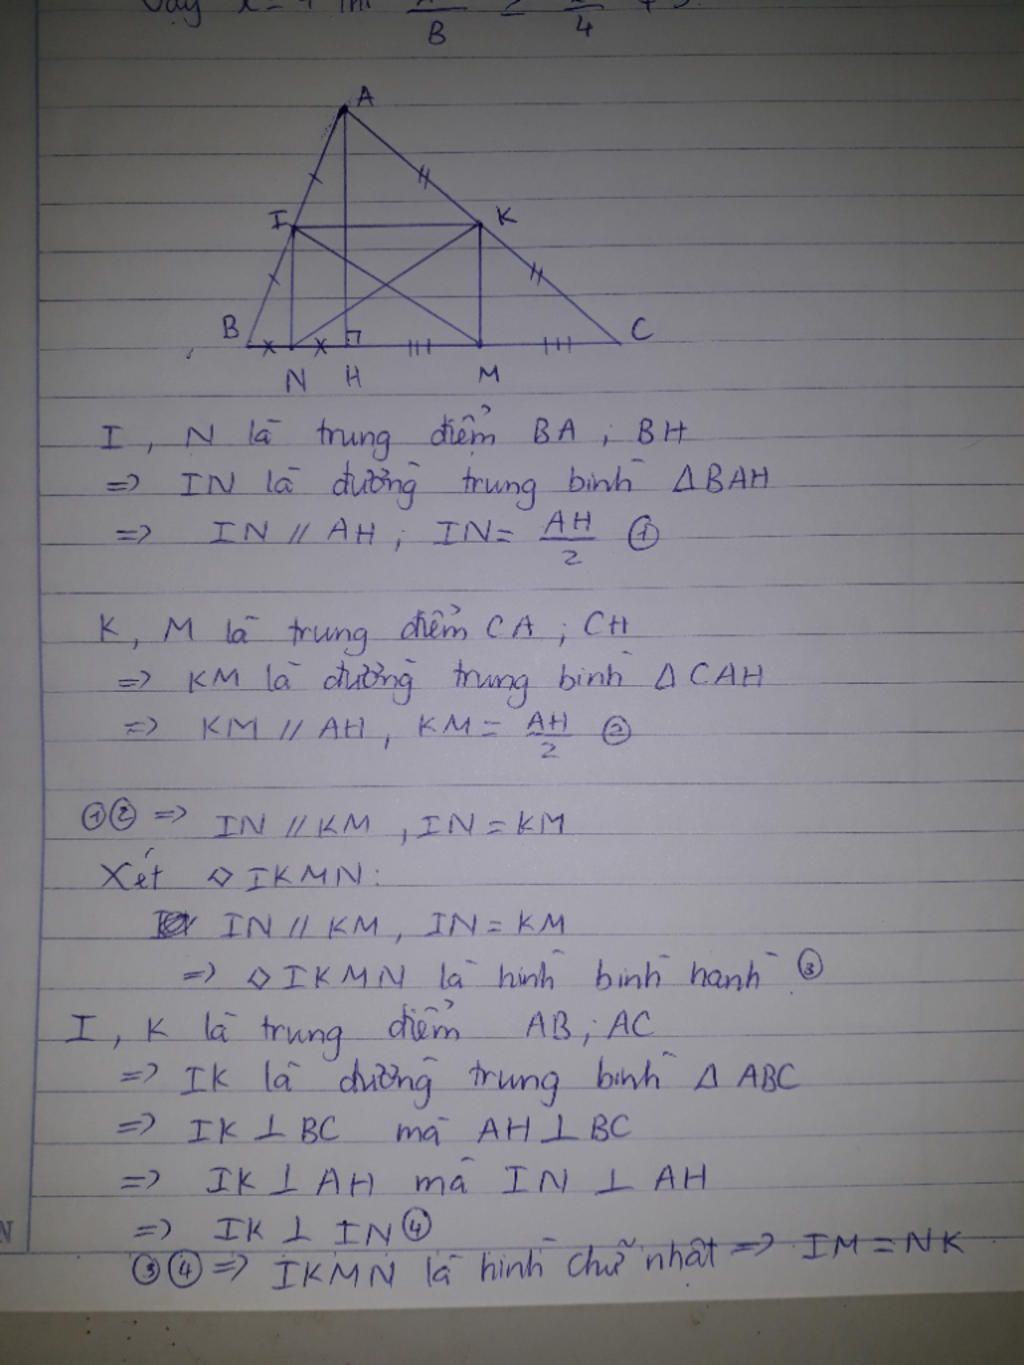 Vậy x = 4 thì B 4
A
I K
B C
N H M
I, N là trung điểm BA; BH
=> IN là đường trung bình ΔBAH
=> IN // AH; IN = AH/2 ①
K, M là trung điểm CA; CH
=> KM là đường trung bình ΔCAH
=> KM // AH, KM = AH/2 ②
①② => IN // KM, IN = KM
Xét ◇IKMN:
IN // KM, IN = KM
=> ◇IKMN là hình bình hành ③
I, K là trung điểm AB; AC
=> IK là đường trung bình Δ ABC
=> IK ⊥ BC mà AH ⊥ BC
=> IK ⊥ AH mà IN ⊥ AH
=> IK ⊥ IN ④
③④ => IKMN là hình chữ nhật => IM = NK